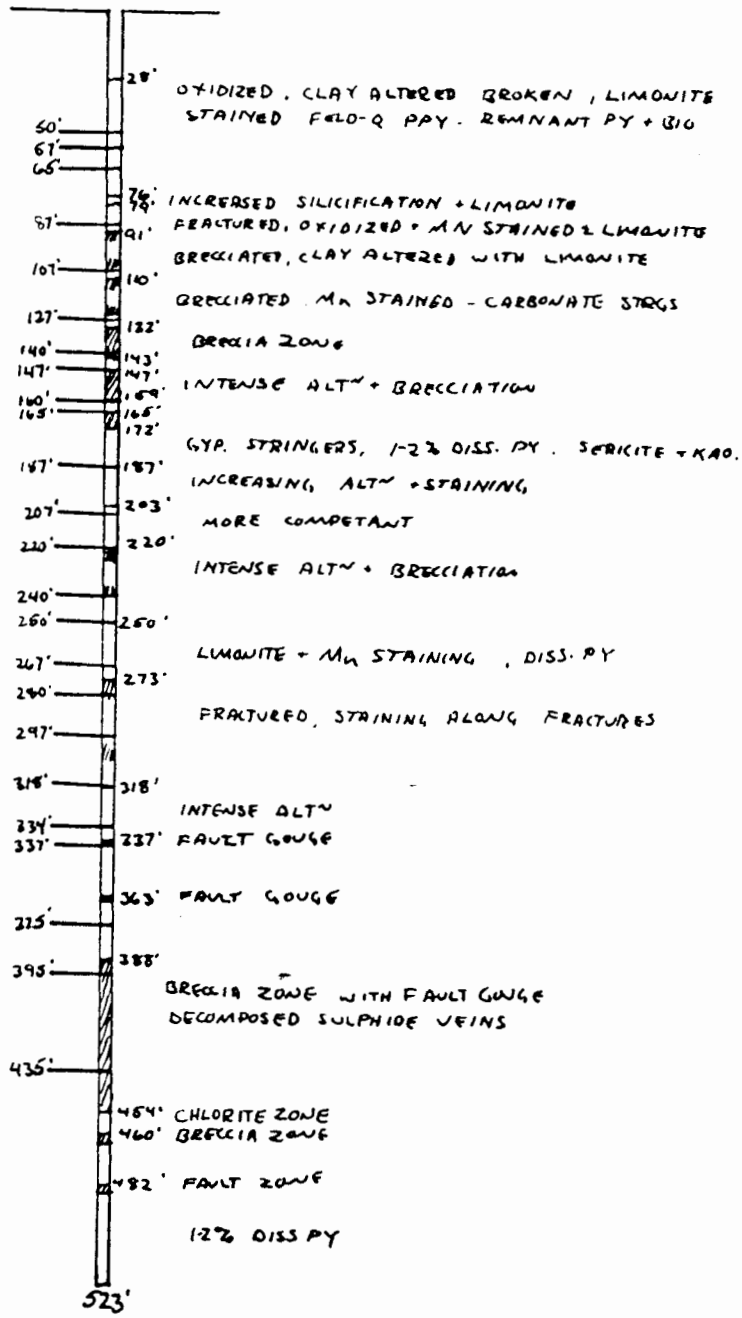 28'
OXIDIZED, CLAY ALTERED BROKEN, LIMONITE
STAINED FELD-Q PPY. REMNANT PY + BIO
50'
57'
65'
76'
79' INCREASED SILICIFICATION + LIMONITE
87' FRACTURED, OXIDIZED + MN STAINED & LIMONITE
91'
BRECCIATED, CLAY ALTERED WITH LIMONITE
107' 110'
BRECCIATED Mn STAINED - CARBONATE STRGS
127' 132'
BRECCIA ZONE
140' 143'
147' 147'
INTENSE ALT~ + BRECCIATION
160' 159'
165' 165'
172'
GYP. STRINGERS, 1-2% DISS. PY. SERICITE + KAO.
187' 187'
INCREASING ALT~ + STAINING
207' 203'
MORE COMPETANT
220' 220'
INTENSE ALT~ + BRECCIATION
240'
250' 250'
LIMONITE + Mn STAINING, DISS. PY
267' 273'
280'
FRACTURED, STAINING ALONG FRACTURES
297'
318' 318'
INTENSE ALT~
334'
337' 337' FAULT GOUGE
363' FAULT GOUGE
375'
388'
395'
BRECCIA ZONE WITH FAULT GOUGE
DECOMPOSED SULPHIDE VEINS
435'
454' CHLORITE ZONE
460' BRECCIA ZONE
482' FAULT ZONE
1-2% DISS PY
523'